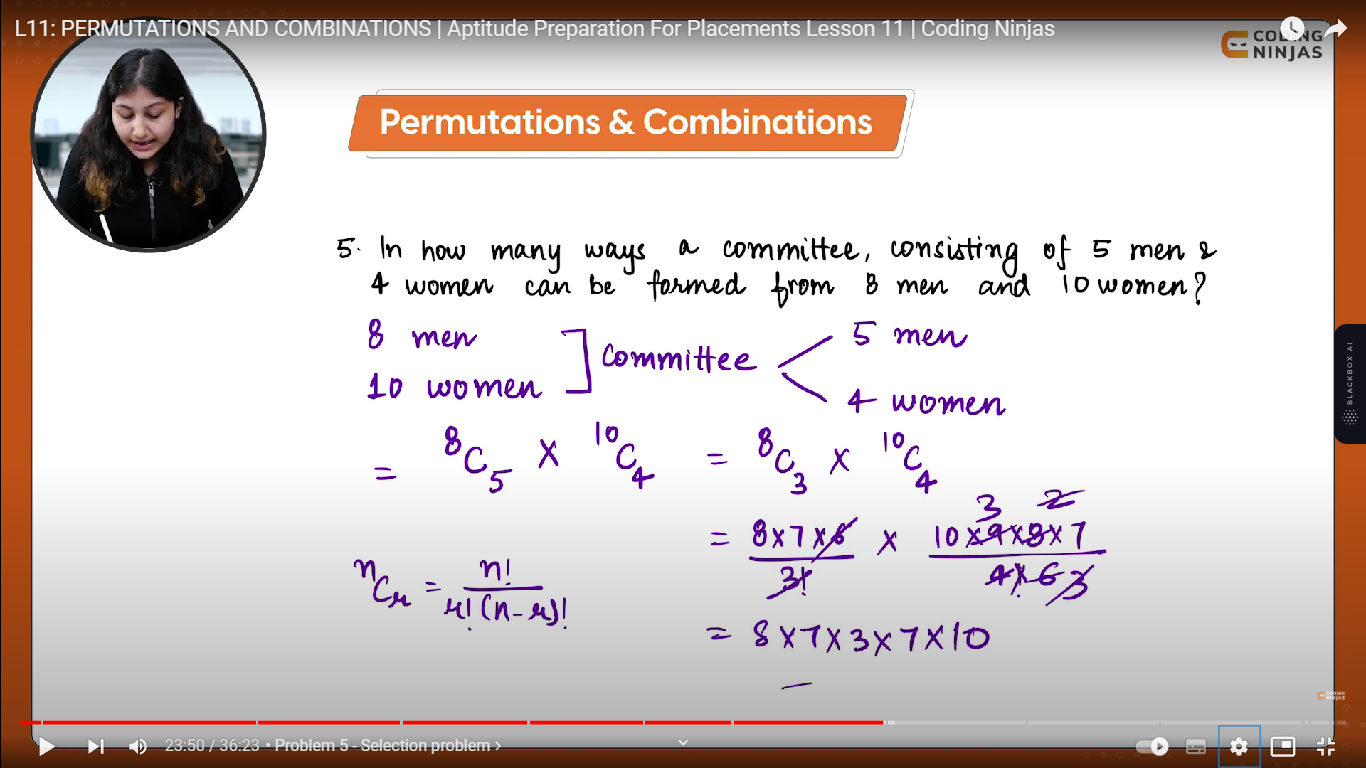 L11: PERMUTATIONS AND COMBINATIONS | Aptitude Preparation For Placements Lesson 11 | Coding Ninjas
CODING
NINJAS
Permutations & Combinations
5. In how many ways a committee, consisting of 5 men &
4 women can be formed from 8 men and 10 women?
8 men
10 women
Committee
5 men
4 women
= ⁸C₅ × ¹⁰C₄ = ⁸C₃ × ¹⁰C₄
3 2
= 8×7×6 × 10×9×8×7
3! 4! 6 3
ⁿCᵣ = n!
r!(n-r)!
= 8×7×3×7×10
BLACKBOX AI
CODING
NINJAS
23:50 / 36:23 • Problem 5 - Selection problem